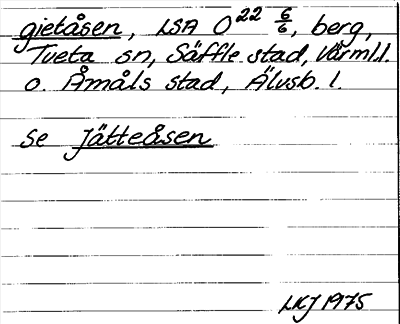 gjetåsen, LSA O22 6/6, berg,
Tveta sn, Säffle stad, Värml.l.
o. Åmåls stad, Älvsb. l.
se Jätteåsen
LKJ 1975